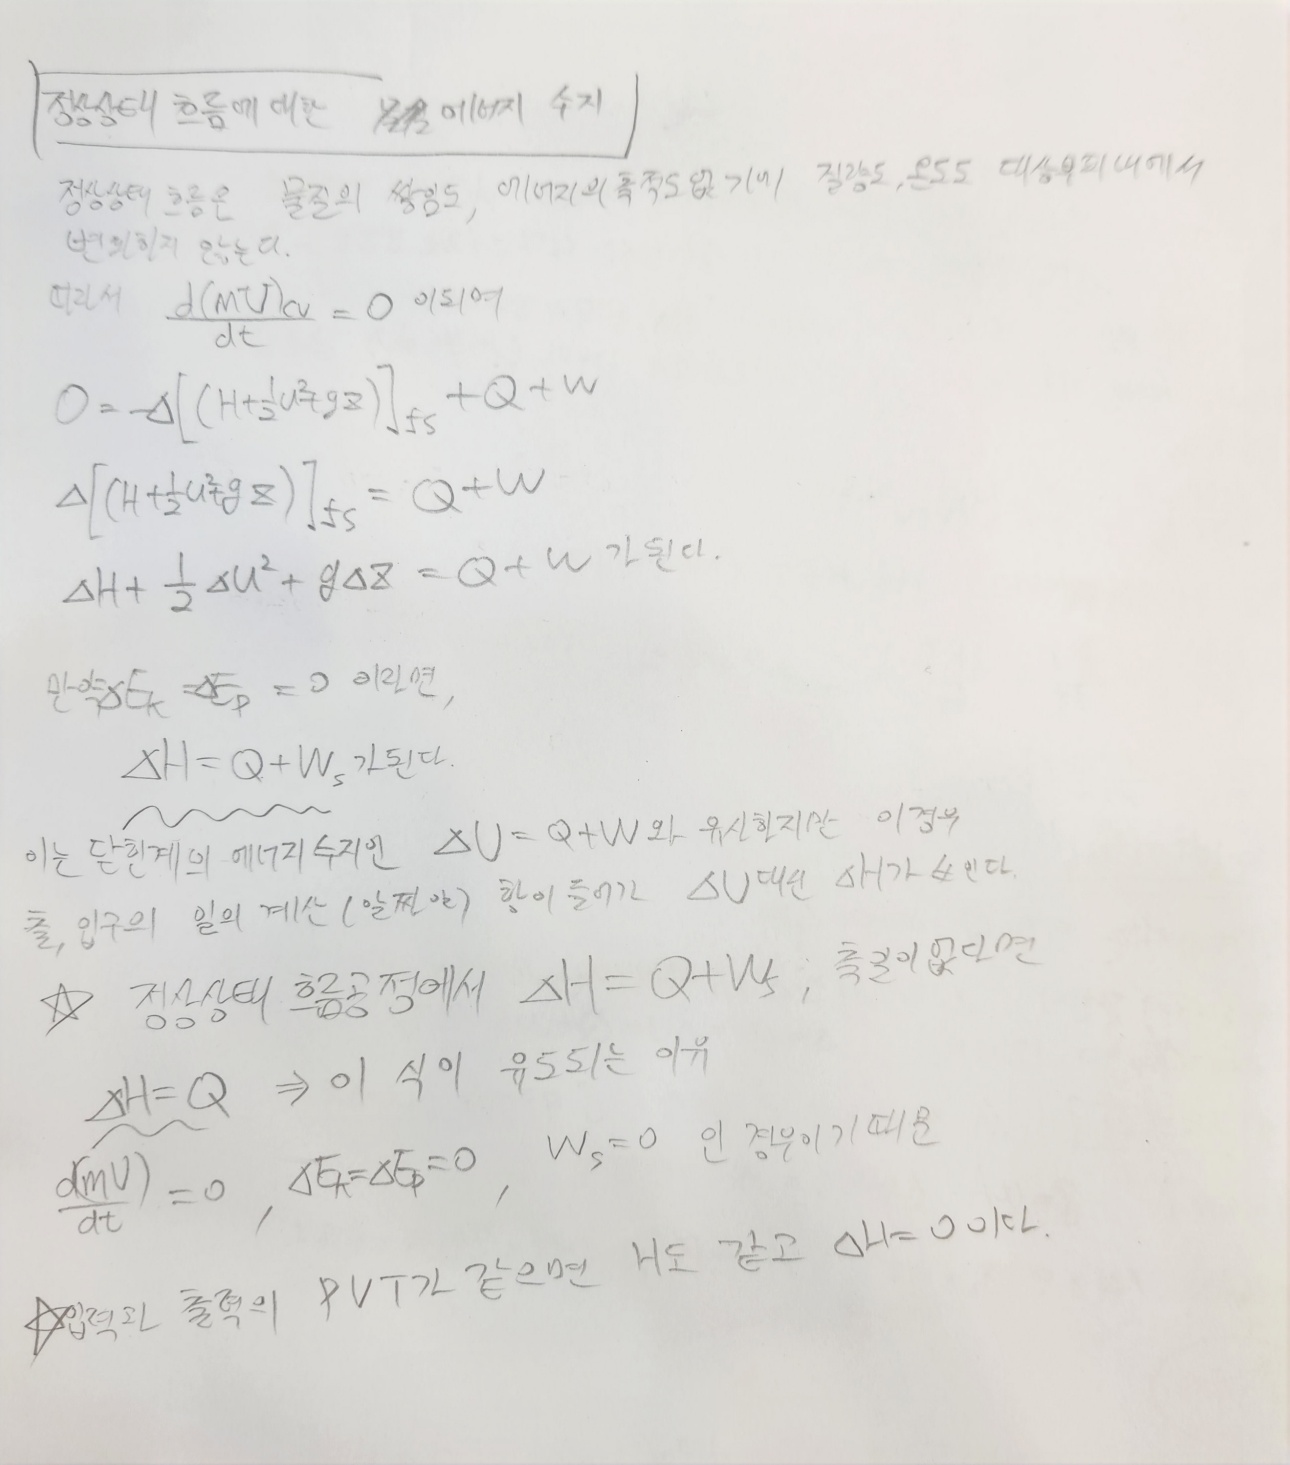 정상상태 흐름에 대한 에너지 수지
정상상태 흐름은 물질의 쌓임도, 에너지의 축적도 없기에 질량도, 온도도 대상부피내에서
변화하지 않는다.
따라서 d(mU)cv/dt = 0 이되며
0 = -Δ[(H+½u²+gz)]fs + Q + W
Δ[(H+½u²+gz)]fs = Q+W
ΔH + ½Δu² + gΔz = Q + W 가 된다.
만약 ΔEk = ΔEp = 0 이라면,
ΔH = Q+Ws 가된다.
이는 닫힌계의 에너지수지인 ΔU = Q+W 와 유사하지만 이경우
출, 입구의 일의 계산(알짜일) 항이 들어가 ΔU대신 ΔH가 쓰인다.
☆ 정상상태 흐름공정에서 ΔH = Q+Ws, 축일이 없다면
ΔH = Q ⇒ 이 식이 유도되는 이유
d(mU)/dt = 0, ΔEk=ΔEp=0, Ws=0 인 경우이기 때문
☆입력과 출력의 PVT가 같으면 H도 같고 ΔH=0 이다.